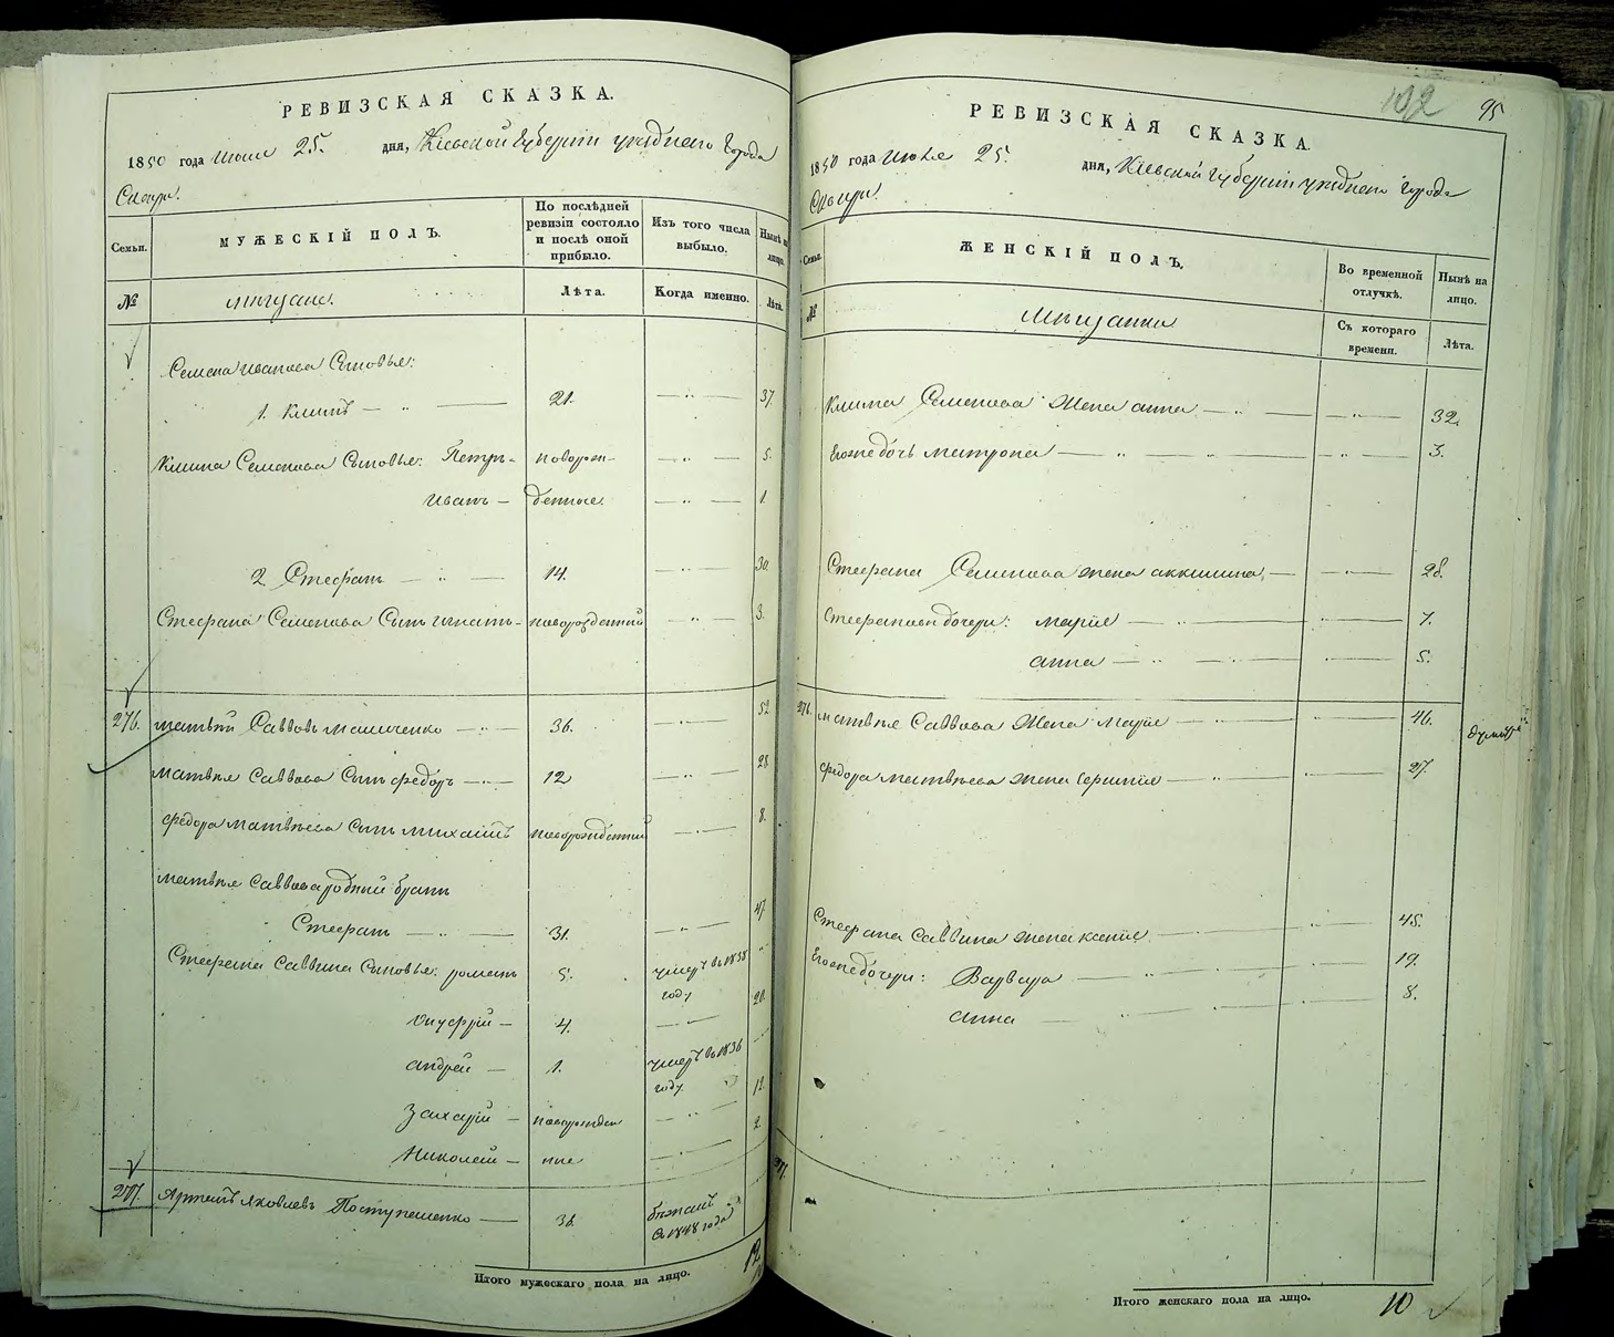 РЕВИЗСКАЯ СКАЗКА.
1850 года июня 25. дня, Кіевской Губерніи уѣзднаго Города
Сквиры.
Семьи.
МУЖЕСКІЙ ПОЛЪ.
По послѣдней ревизіи состояло и послѣ оной прибыло.
Изъ того числа выбыло.
Нынѣ на лицо.
№
мѣщане.
Лѣта.
Когда именно.
Лѣта.
Семена Иванова Сыновья:
1. Климъ — „ — 21. — „ — 37.
Клима Семенова Сыновья: Петръ - новорож- — „ — 5.
Иванъ — денные. — „ — 1.
2 Стефанъ — „ — 14. — „ — 30.
Стефана Семенова Сынъ Игнатъ - новорожденный — „ — 3.
276. Матвѣй Саввовъ — „ — 36. — „ — 52
Матвѣя Саввова Сынъ Федоръ — „ — 12 — „ — 28
Федора Матвѣева Сынъ Михаилъ новорожденный — „ — 8.
Матвѣя Саввова родный братъ
Стефанъ — „ — 31. — „ — 47
Стефана Саввина Сыновья: Романъ 5. умеръ въ 1838 „
году
Онуфрій — 4. — „ — 20.
Андрей — 1. умеръ въ 1836
году.
Захарій — новорожден — „ — 12.
Николай — ные — „ — 2.
277. Артемъ Яковлевъ — 36. бѣжалъ
съ 1848 года
Итого мужескаго пола на лицо. 12
102 95
РЕВИЗСКАЯ СКАЗКА.
1850 года июня 25. дня, Кіевской Губерніи уѣзднаго Города
Сквиры.
Семьи.
ЖЕНСКІЙ ПОЛЪ.
Во временной отлучкѣ.
Нынѣ на лицо.
№
Мѣщанки
Съ котораго времени.
Лѣта.
Клима Семенова Жена Анна — „ — — „ — 32.
Егоже дочь Матрона — „ — „ — — „ — 3.
Стефана Семенова жена Аккилина, — — „ — 28.
Стефановы дочери: Марія — „ — — „ — 7.
Анна — „ — — „ — 5.
276. Матвѣя Саввова Жена Марія — „ — — „ — 46.
Федора Матвѣева жена — „ — — „ — 27.
Стефана Саввина жена Ксенія — „ — — „ — 45.
Егоже дочери: Варвара — „ — — „ — 19.
Анна — „ — — „ — 8.
277.
Итого женскаго пола на лицо. 10